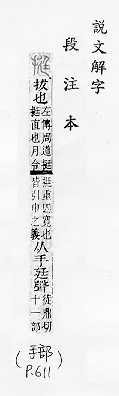 説文解字
段注本
挺 拔也 左傳周道挺挺直也月令挺重囚寬也皆引申之義 从手廷聲 徒鼎切十一部
(手部)
P.611